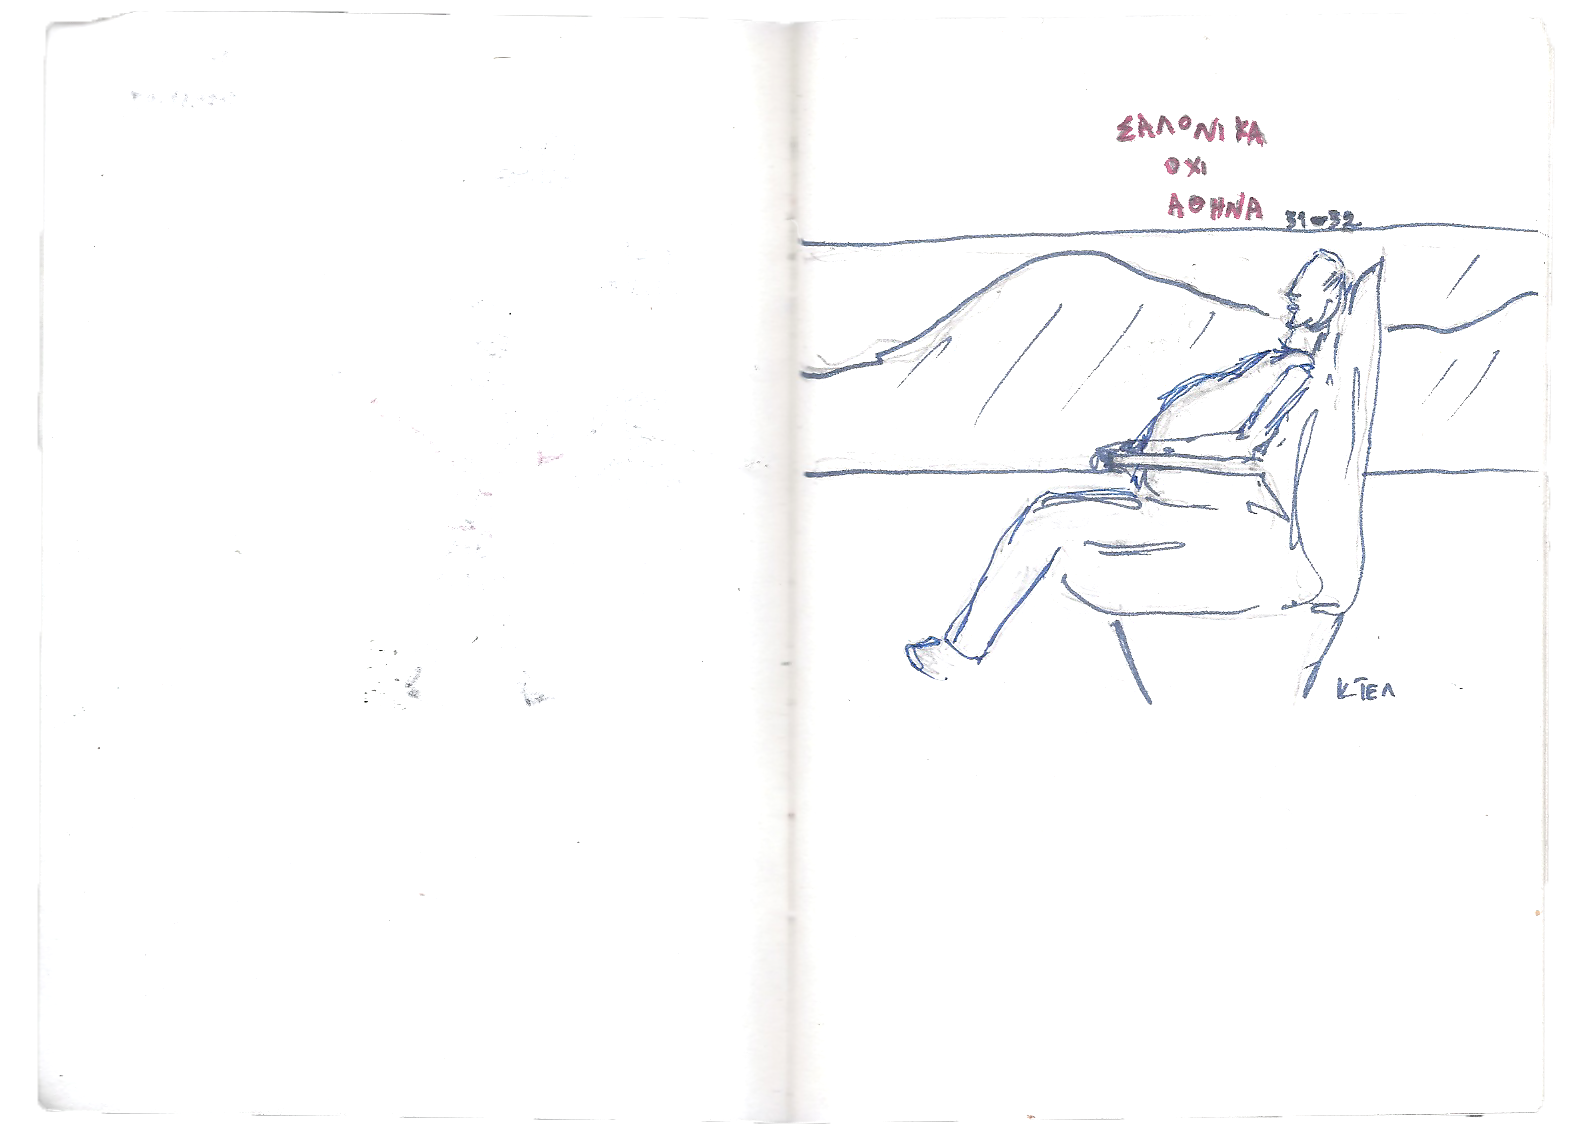 ΣΑΛΟΝΙΚΑ
ΟΧΙ
ΑΘΗΝΑ
31-32
ΚΤΕΛ